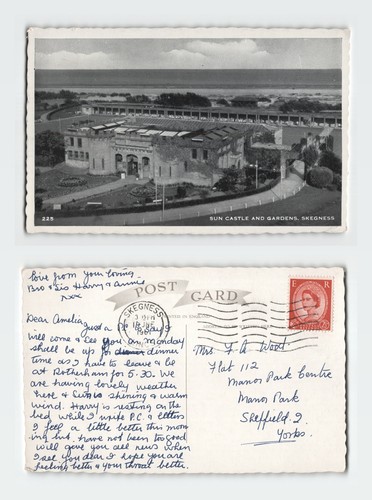 225
SUN CASTLE AND GARDENS, SKEGNESS
love from your loving
Bro & Sis Harry & Anny
xxx
POST CARD
SKEGNESS
E R
Dear Amelia,
Just a P.C. to say I
will come & see you on monday
shall be up for dinner dinner
time as I have to leave & be
at Rotherham for 5-30. We
are having lovely weather
here & Sun is shining & warm
wind. Harry is resting on the
bed while I write P.C. & letters
I feel a little better this morn
ing but have not been too good
will give you all news when
I see you dear. I hope you are
feeling better & your throat better.
Mrs. F. A. Wood
Flat 112
Manor Park Centre
Manor Park
Sheffield. 2
Yorks.